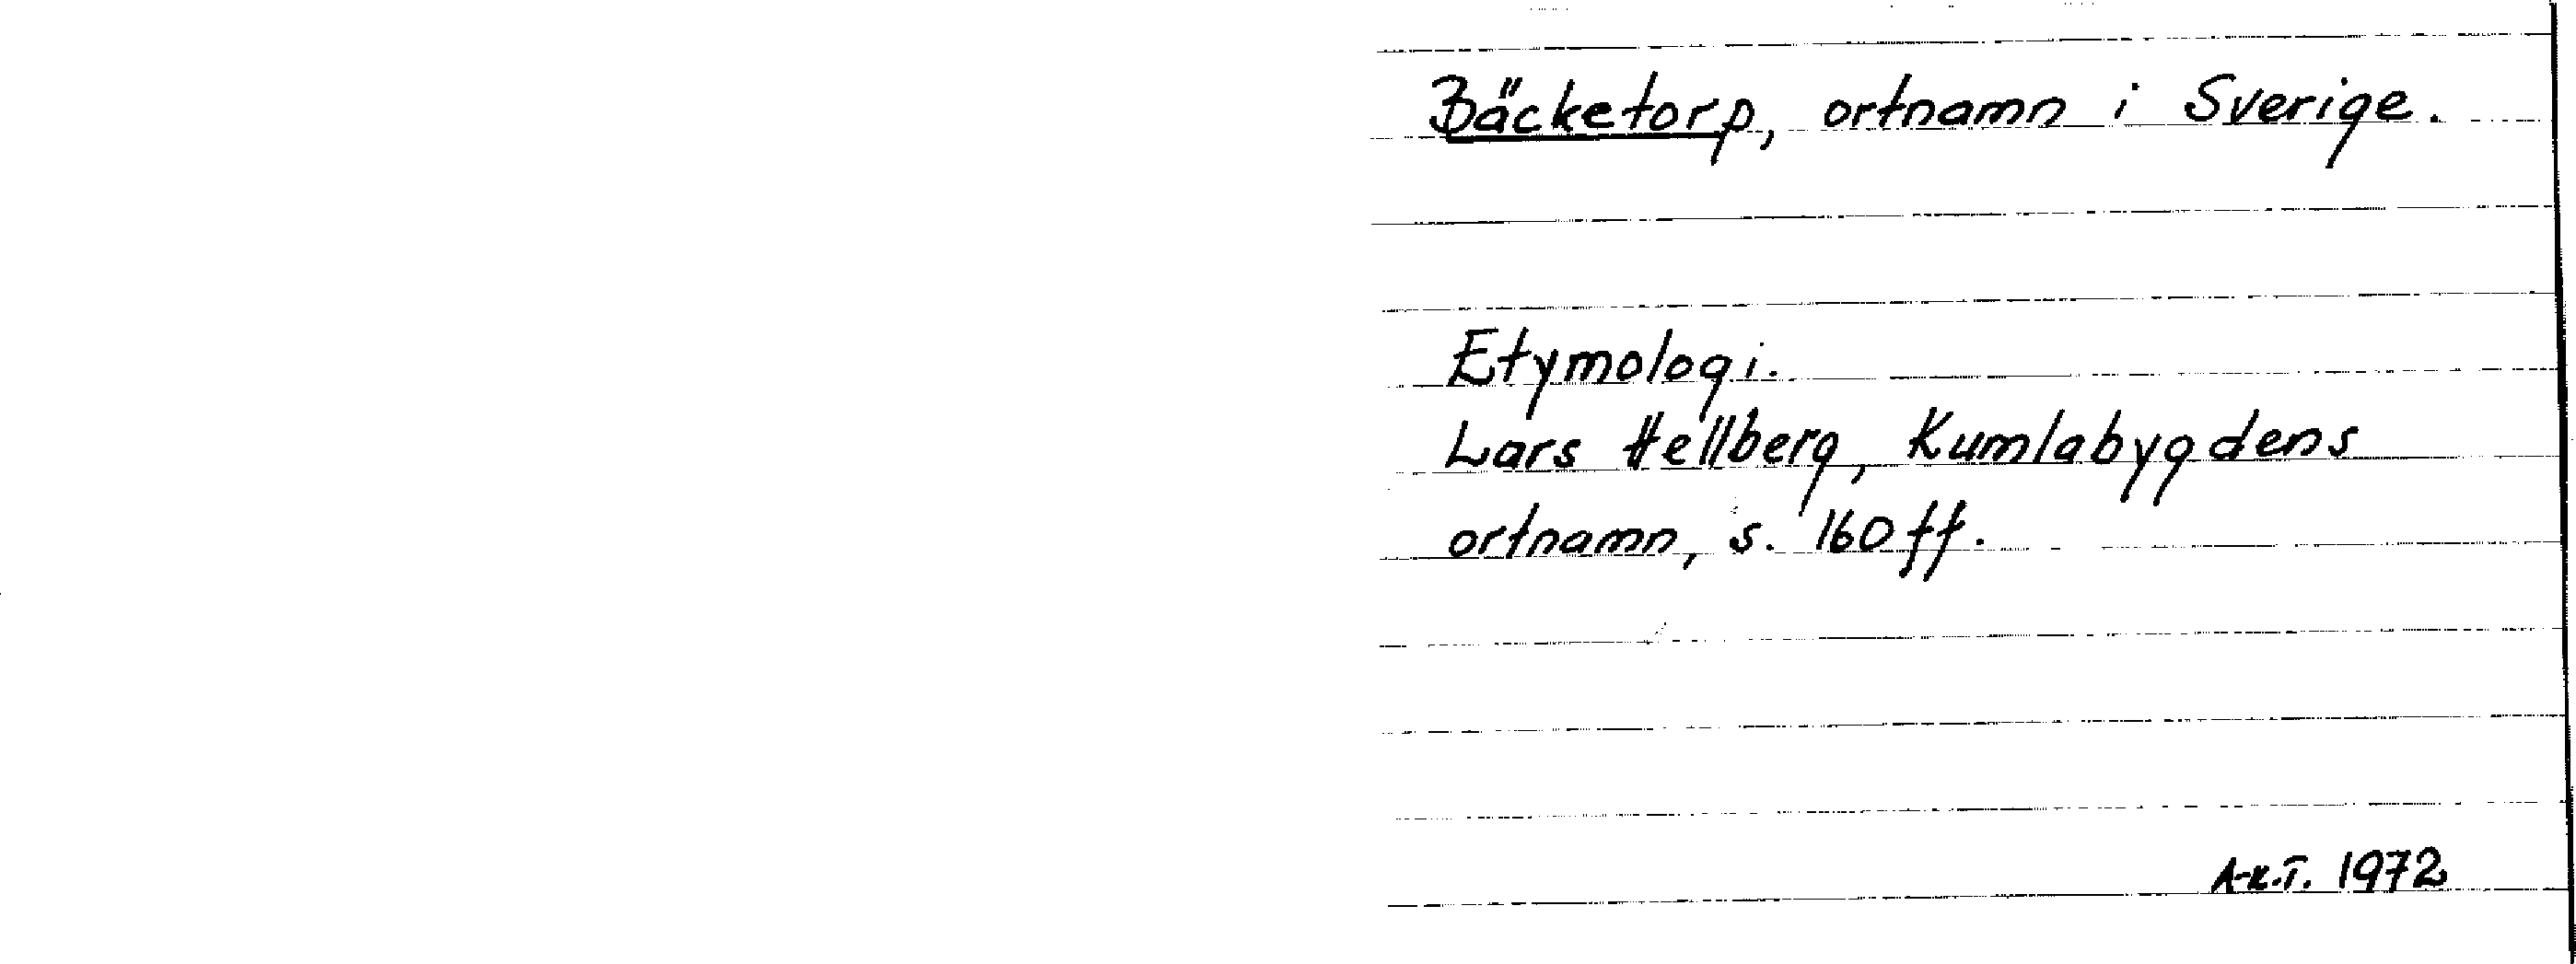 Bäcketorp, ortnamn i Sverige.
Etymologi.
Lars Hellberg, Kumlabygdens
ortnamn, s. 160 ff.
A-K.T. 1972